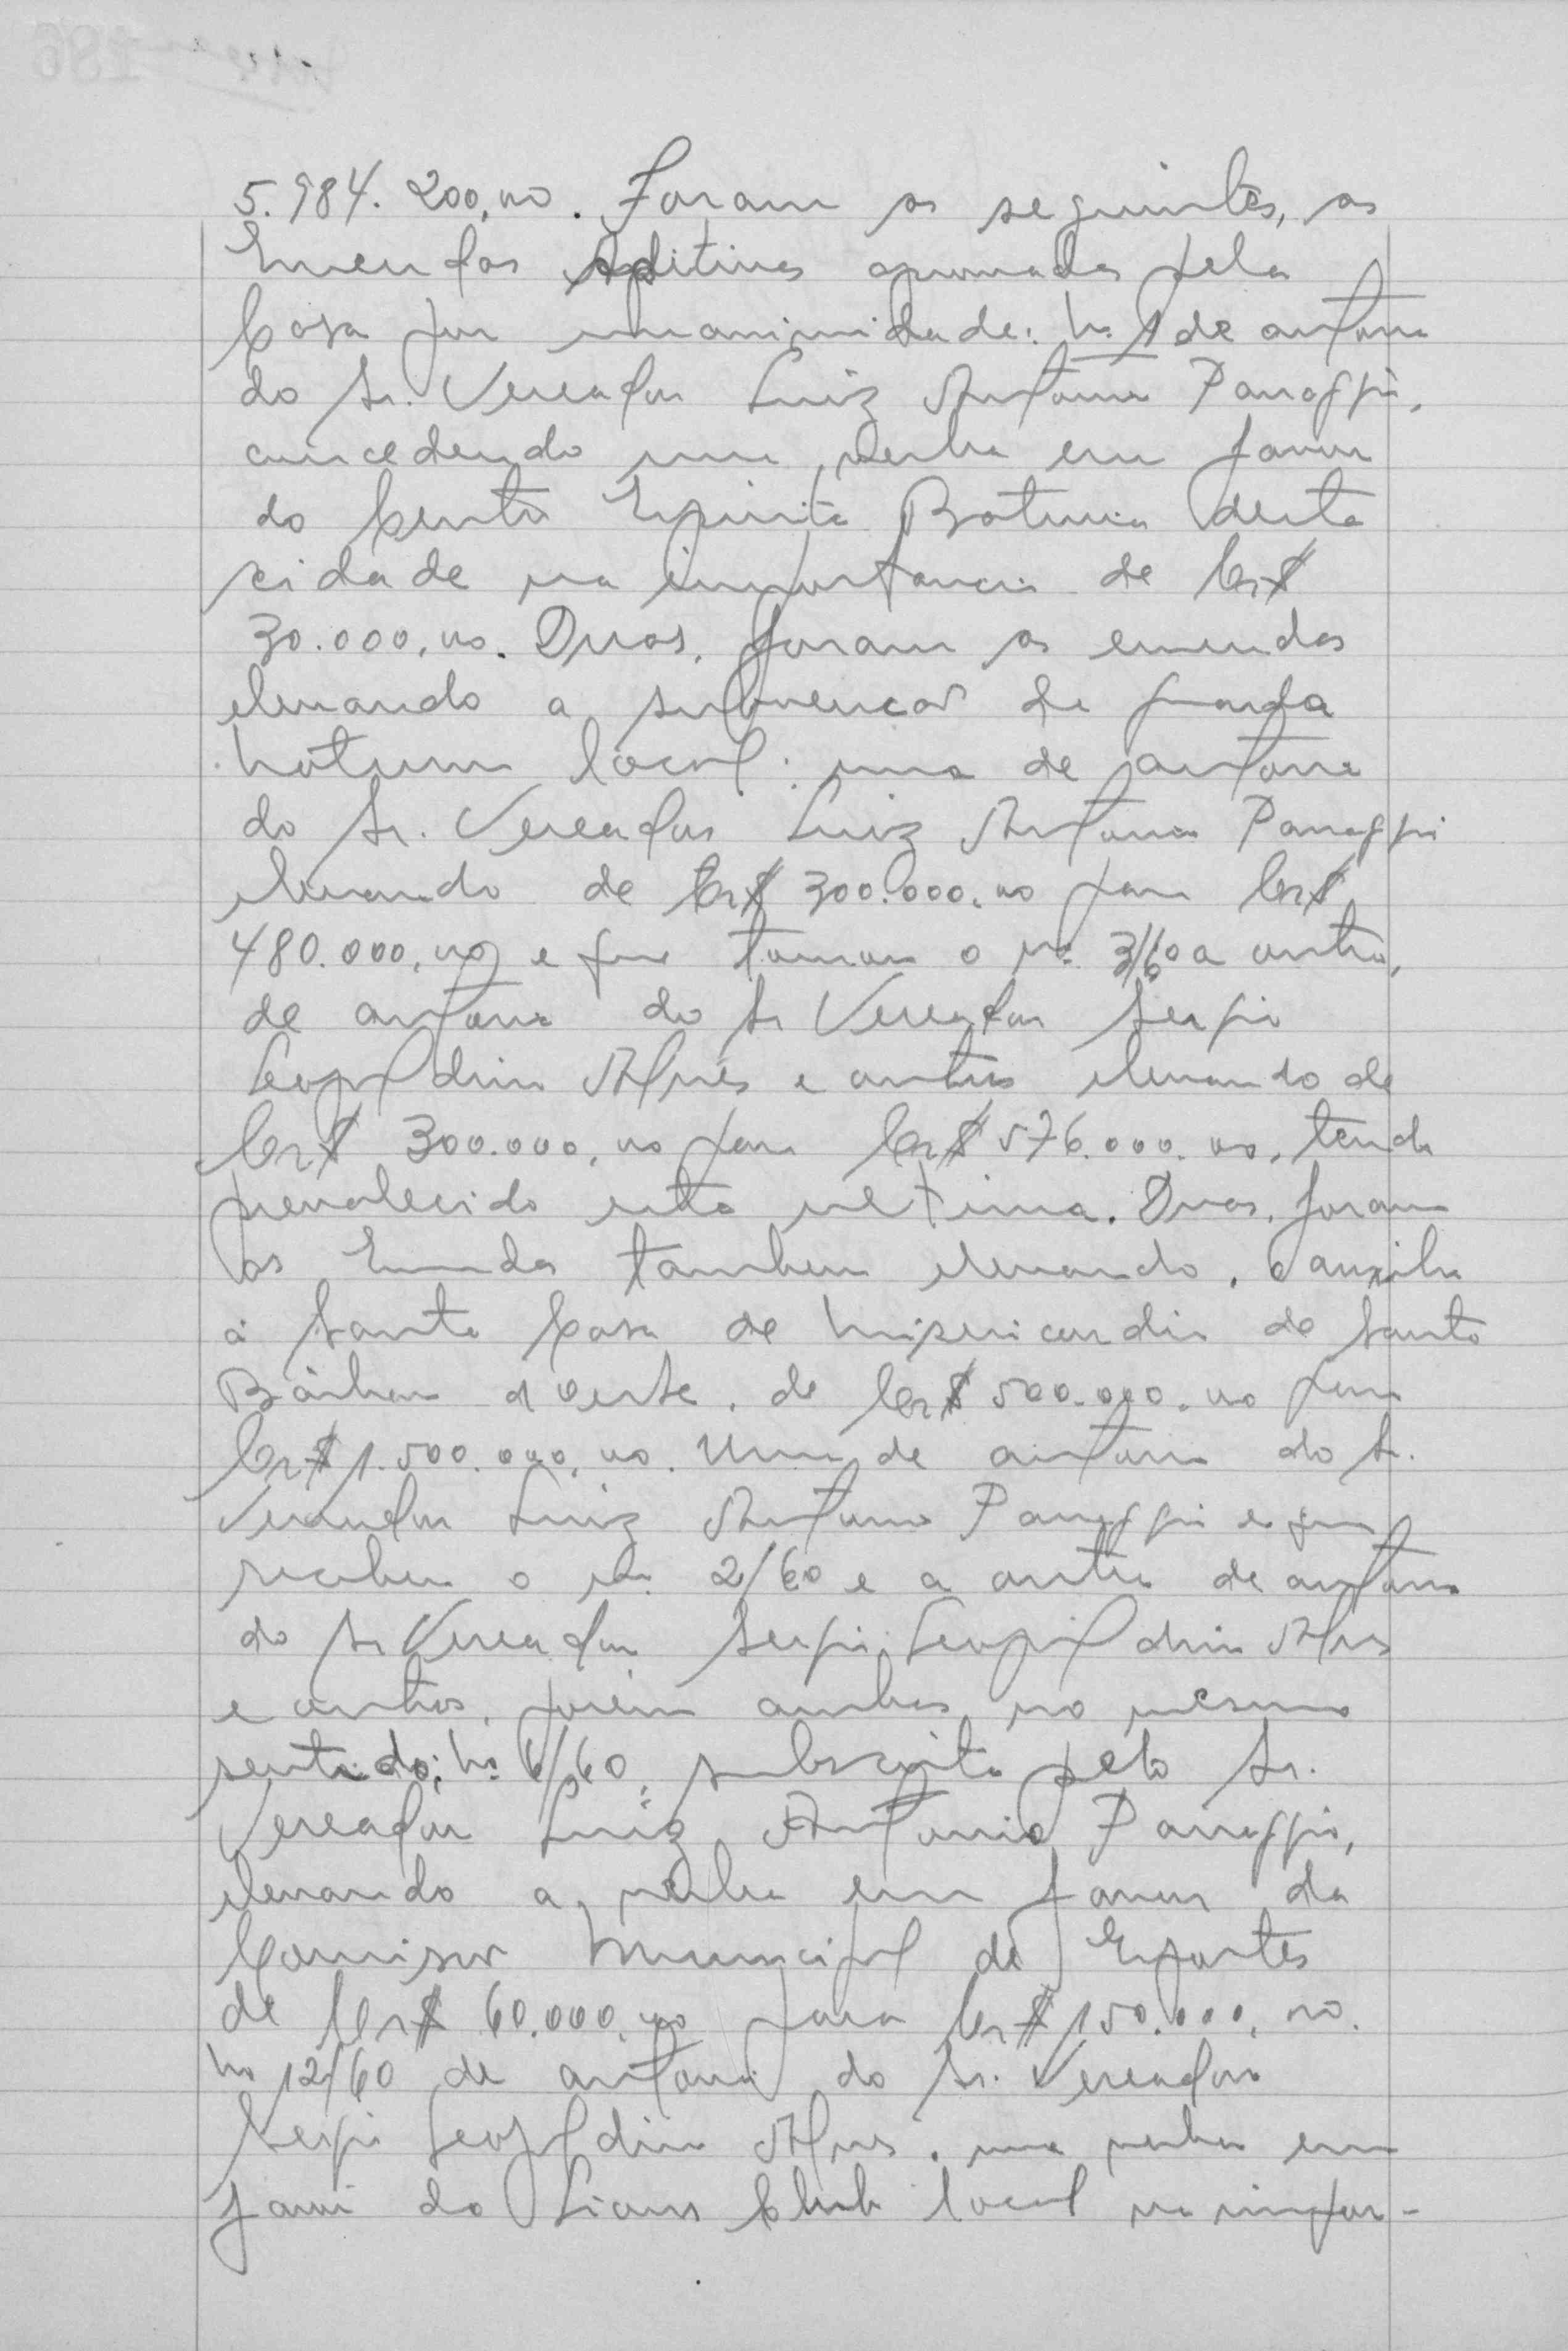 5.984.200,00. Foram as seguintes, as
Emendas Aditivas aprovadas pela
Casa por unanimidade: nº 1 de autoria
do Sr. Vereador Luiz Antonio Panaggio,
concedendo uma verba em favor
do Centro Espirita Batuira desta
cidade na importancia de Cr$
30.000,00. Duas, foram as emendas
elevando a subvencão da guarda
Noturna local: uma de autoria
do Sr. Vereador Luiz Antonio Panaggio
elevando de Cr$ 300.000,00 para Cr$
480.000,00 e que tomou o nº 3/60 a outra,
de autoria do Sr Vereador Sergio
Leopoldino Alves e outros elevando de
Cr$ 300.000,00 para Cr$ 576.000,00, tendo
prevalecido esta ultima. Duas, foram
as Emendas tambem elevando, o auxilio
á Santa Casa de Misericordia de Santa
Bárbara d'Oeste, de Cr$ 500.000,00 para
Cr$ 1.500.000,00. Uma de autoria do Sr.
Vereador Luiz Antonio Panaggio e que
recebeu o nº 2/60 e a outra de autoria
do Sr Vereador Sergio Leopoldino Alves
e outros, porém ambas no mesmo
sentido; nº 6/60, subscrita pelo Sr.
Vereador Luiz Antonio Panaggio,
elevando a verba em favor da
Comissão Municipal de Esportes
de Cr$ 60.000,00 para Cr$ 150.000,00.
nº 12/60 de autoria do Sr. Vereador
Sergio Leopoldino Alves, uma verba em
favor do Lions Club local na impor-